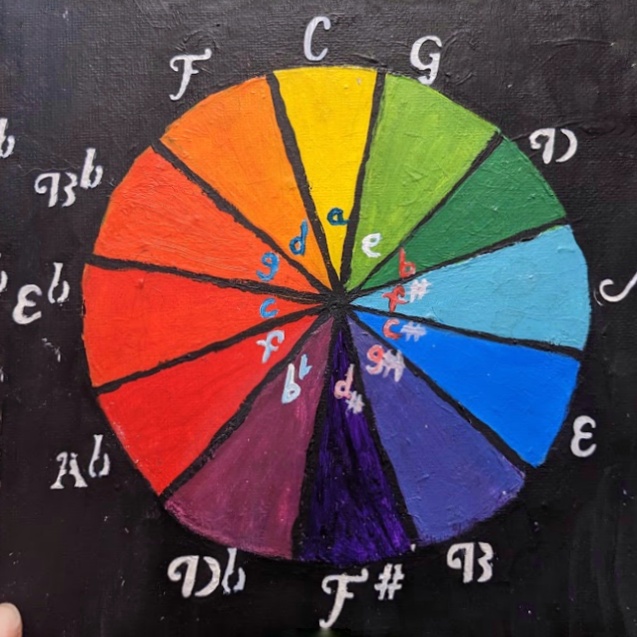 C
G
D
E
B
F#
Db
Ab
Eb
Bb
F
a
e
b
f#
c#
g#
d#
bb
f
c
g
d